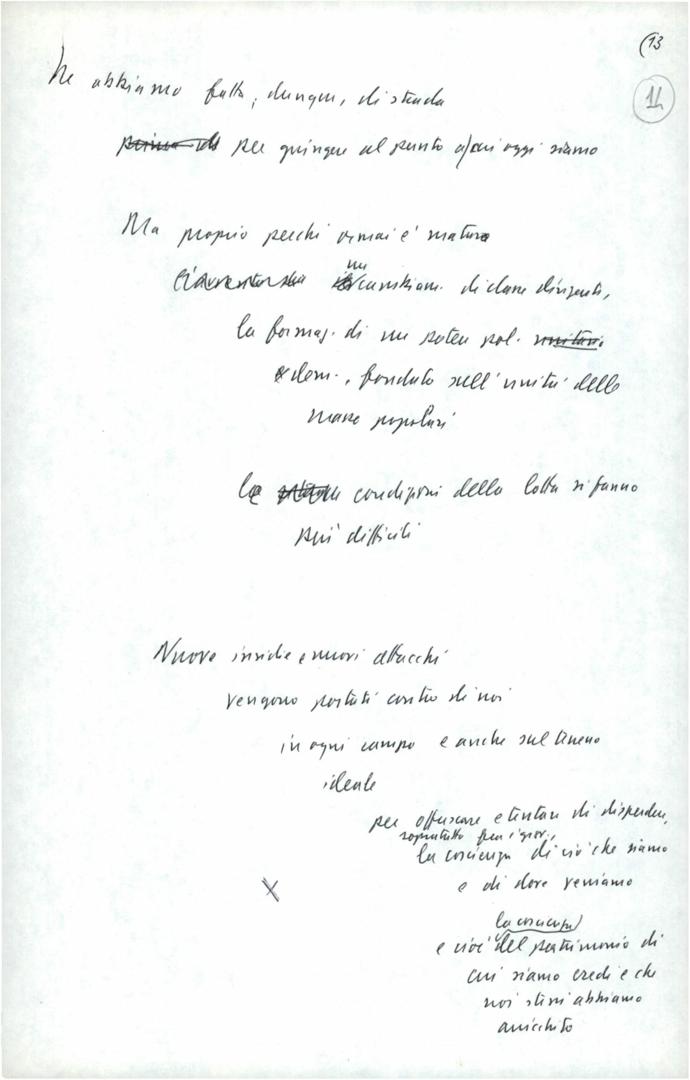 (13
14
Ne abbiamo fatta, dunque, di strada
per giungere al punto a cui oggi siamo
Ma proprio perché ormai è matura
un cambiam. di classe dirigente,
la formaz. di un potere pol. unitario
e dem., fondato sull'unità delle
masse popolari
le condizioni della lotta si fanno
più difficili
Nuove insidie e nuovi attacchi
vengono portati contro di noi
in ogni campo e anche sul terreno
ideale
per offuscare e tentare di disperdere,
sopratutto fra i giov.,
la coscienza di ciò che siamo
e di dove veniamo
la coscienza
e cioè del patrimonio di
cui siamo eredi e che
noi stessi abbiamo
arricchito